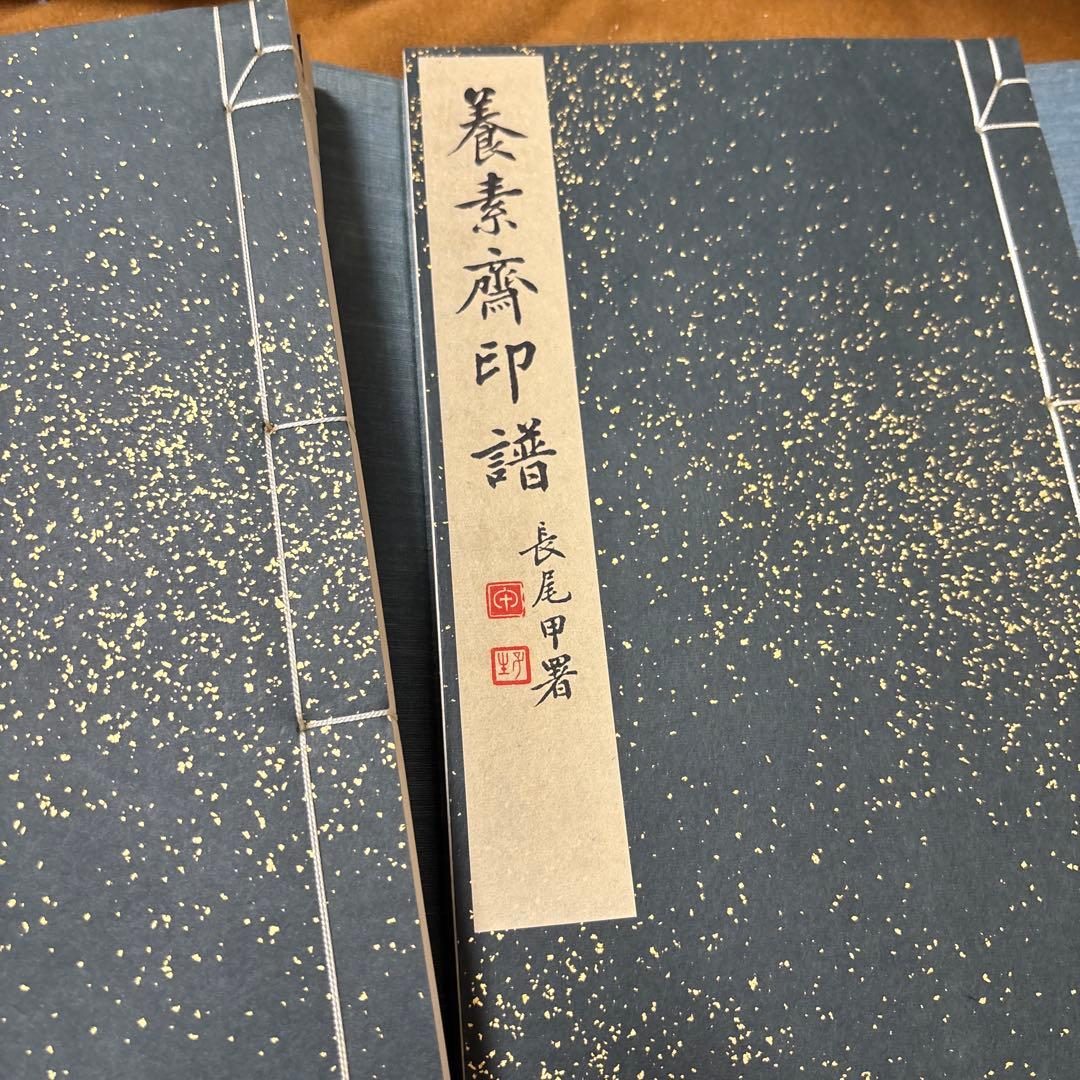 養素齋印譜
長尾甲署